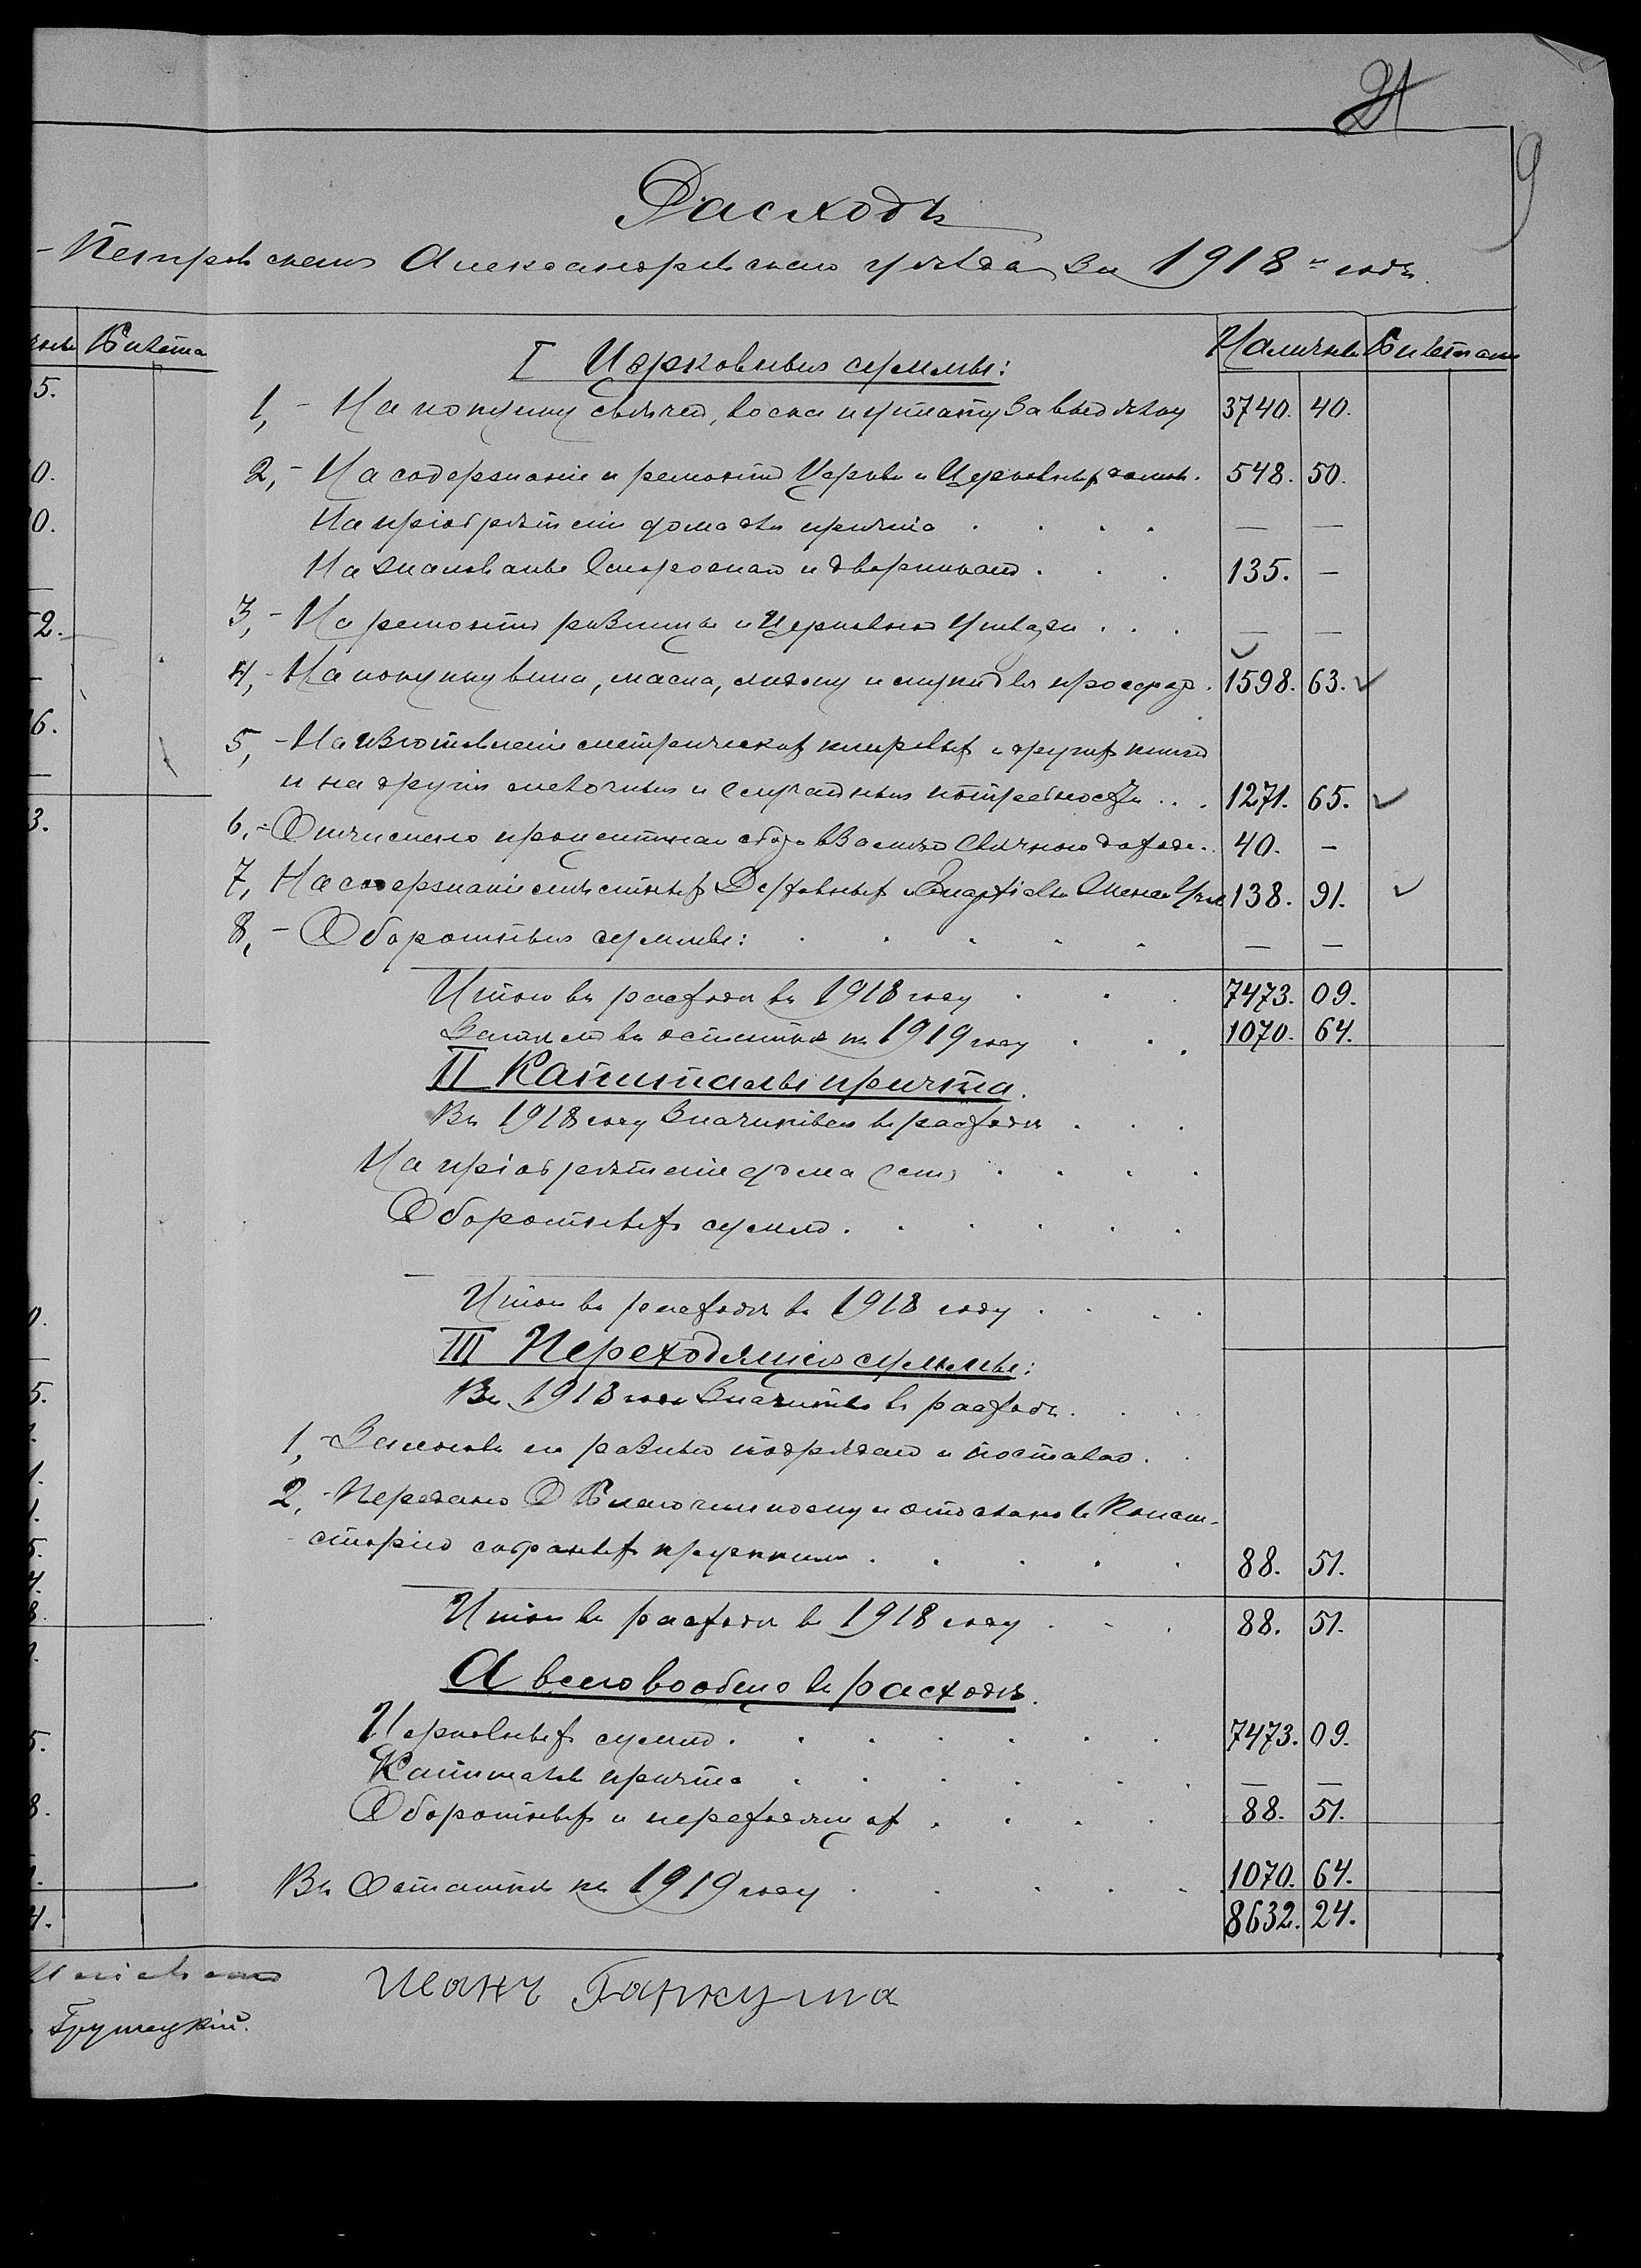 21
9
Расходъ
- Петровскаго Александровскаго уѣзда за 1918 й годъ.
Билета
Наличные Билетами
I Церковныя суммы:
1, - На покупку свѣчей, воска и уплату за выдѣлку 3740. 40.
2, - На содержаніе и ремонтъ Церкви и Церковныхъ домовъ. 548. 50.
На пріобрѣтеніе дома для причта . . . . — —
На жалованье сторожамъ и дворникамъ . . . 135. —
3, - На ремонтъ ризницы и Церковной утвари . . . — —
4, - На покупку вина, масла, ладону и муки для просфоръ. 1598. 63.
5, - На изготовленіе метрическихъ клировыхъ и другихъ книгъ
и на другія мелочныя и случайныя потребности . . . 1271. 65.
6, - Отчислено процентнаго сбора взамѣнъ свѣчного дохода . . 40. —
7, На содержаніе мѣстныхъ Духовныхъ Епархіальн 138. 91.
8, - Оборотныя суммы: . . . . . — —
Итого въ расходѣ въ 1918 году . . . 7473. 09.
Затѣмъ въ остаткѣ къ 1919 году . . . 1070. 64.
II Капиталы причта.
Въ 1918 году значится въ расходѣ . . .
На пріобрѣтеніе дома . . . .
Оборотныхъ суммъ . . . . . .
Итого въ расходѣ въ 1918 году . . .
III Переходящія суммы:
Въ 1918 году значится въ расходѣ . . .
1, - Залоговъ по разнымъ подрядамъ и поставкамъ . .
2, - Передано О Благочинному и отослано въ Конси-
сторію собранныхъ кружками . . . . . 88. 51.
Итого въ расходѣ въ 1918 году . . . 88. 51.
А всего вообще въ расходѣ.
Церковныхъ суммъ . . . . . . 7473. 09.
Капиталы причта . . . . . . — —
Оборотныхъ и переходящихъ . . . . 88. 51.
Въ Остаткѣ къ 1919 году . . . . . 1070. 64.
8632. 24.
Иванъ
Грушецкій.